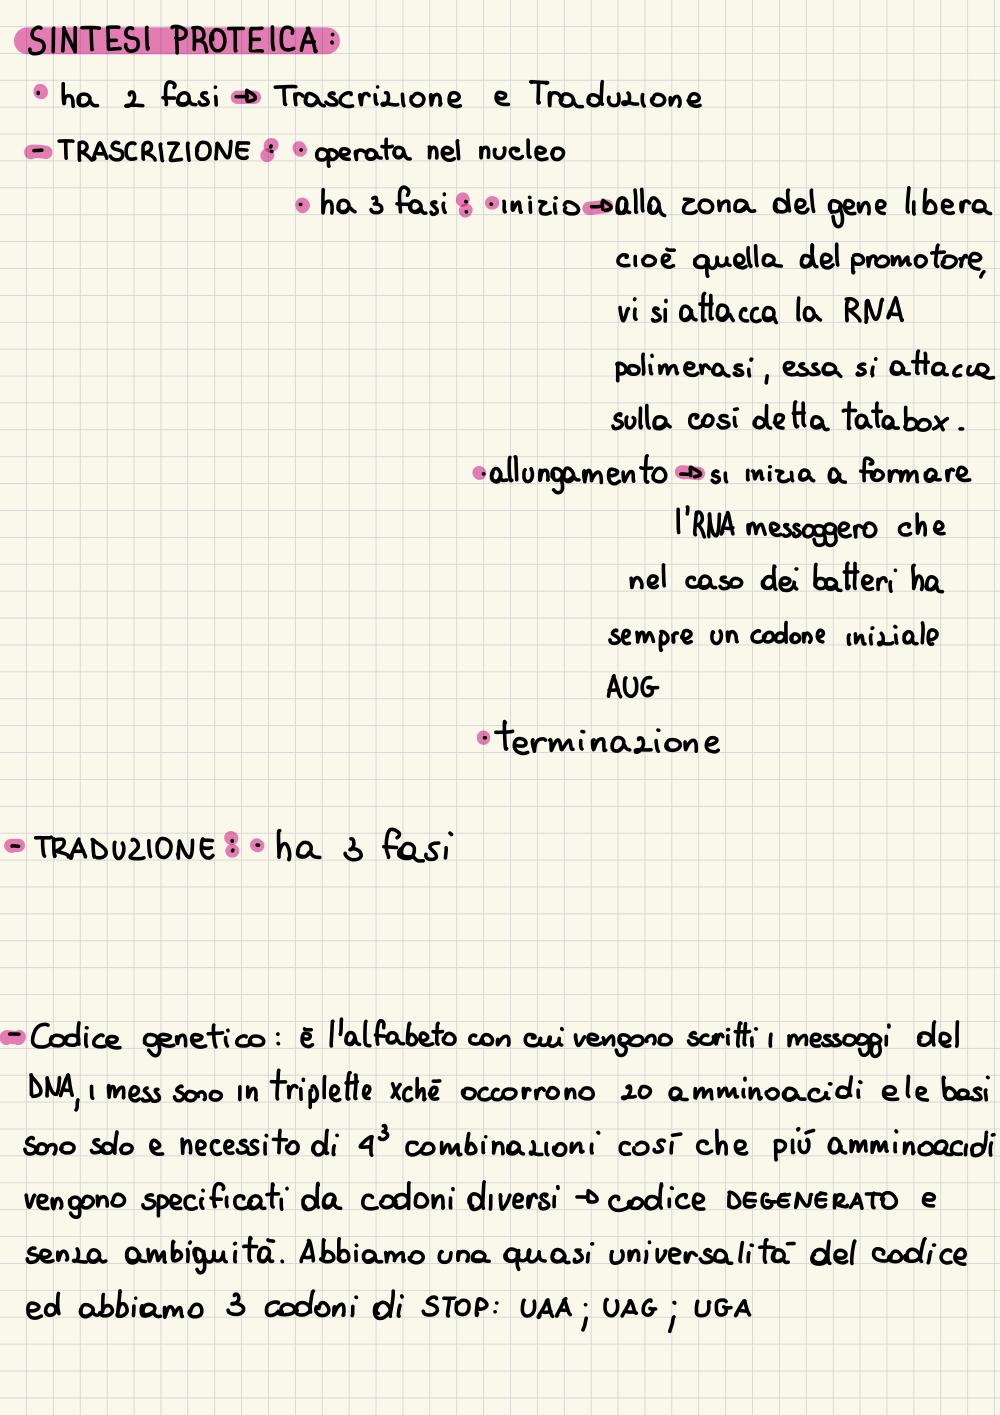 SINTESI PROTEICA:
• ha 2 fasi → Trascrizione e Traduzione
- TRASCRIZIONE: • operata nel nucleo
• ha 3 fasi: • inizio → alla zona del gene libera
cioè quella del promotore,
vi si attacca la RNA
polimerasi, essa si attacca
sulla così detta tatabox.
• allungamento → si inizia a formare
l'RNA messaggero che
nel caso dei batteri ha
sempre un codone iniziale
AUG
• terminazione
- TRADUZIONE: • ha 3 fasi
- Codice genetico: è l'alfabeto con cui vengono scritti i messaggi del
DNA, i mess sono in triplette xchè occorrono 20 amminoacidi e le basi
sono solo e necessito di 4³ combinazioni così che più amminoacidi
vengono specificati da codoni diversi → codice DEGENERATO e
senza ambiguità. Abbiamo una quasi universalità del codice
ed abbiamo 3 codoni di STOP: UAA; UAG; UGA